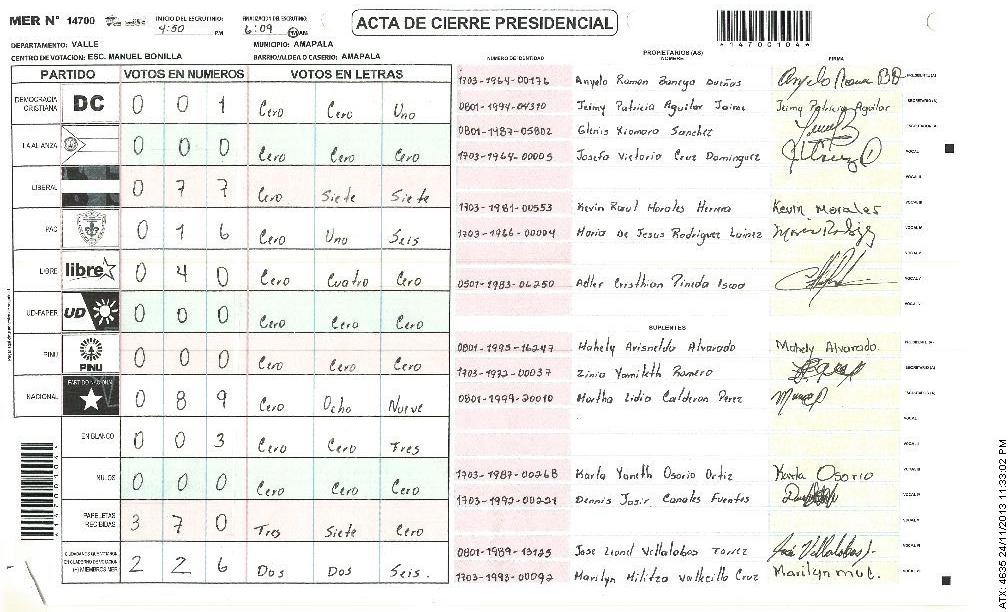 MER N° 14700
INICIO DEL ESCRUTINIO:
4:50 PM
FINALIZACION DEL ESCRUTINIO:
6:09 AM
ACTA DE CIERRE PRESIDENCIAL
*14700104*
DEPARTAMENTO: VALLE MUNICIPIO: AMAPALA
CENTRO DE VOTACION: ESC. MANUEL BONILLA BARRIO/ALDEA O CASERIO: AMAPALA
PARTIDO VOTOS EN NUMEROS VOTOS EN LETRAS
DEMOCRACIA CRISTIANA DC 0 0 1 Cero Cero Uno
LA ALIANZA 0 0 0 Cero Cero Cero
LIBERAL 0 7 7 Cero Siete Siete
PAC 0 1 6 Cero Uno Seis
LIBRE libre 0 4 0 Cero Cuatro Cero
UD-FAPER UD 0 0 0 Cero Cero Cero
PINU PINU 0 0 0 Cero Cero Cero
NACIONAL PARTIDO NACIONAL 0 8 9 Cero Ocho Nueve
EN BLANCO 0 0 3 Cero Cero Tres
NULOS 0 0 0 Cero Cero Cero
PAPELETAS RECIBIDAS 3 7 0 Tres Siete Cero
2 2 6 Dos Dos Seis.
NUMERO DE IDENTIDAD PROPIETARIOS (AS) NOMBRE FIRMA
1703-1964-00176 Angelo Ramon PRESIDENTE(A)
0801-1994-04310 Jeimy Patricia Aguilar Jaime Jeimy Patricia Aguilar SECRETARIO(A)
0801-1987-05802 Glenis Xiomara Sanchez
1703-1964-00005 Josefa Victoria Cruz Dominguez VOCAL I
VOCAL II
1703-1981-00553 Kevin Raul Morales Herrera Kevin Morales VOCAL III
1703-1966-00004 Maria De Jesus Rodriguez Lainez VOCAL IV
0501-1983-06250 Adler Cristhian Pineda
SUPLENTES
0801-1995-16247 Mahely Alvarado Mahely Alvarado. PRESIDENTE(A)
1703-1972-00037 Zinia Yamileth Romero SECRETARIO(A)
0801-1999-20010 Martha Lidia Calderon Perez
VOCAL I
1703-1987-00268 Karla Yaneth Osorio Ortiz Karla Osorio
1703-1992-00221 Dennis Josir Canales Fuentes VOCAL IV
0801-1989-13125 Jose Lionel Villalobos Torrez José Villalobos
1703-1993-00092 Marilyn Militza Vallecillo Cruz Marilyn
*14700104*
ATX: 4635 24/11/2013 11:33:02 PM